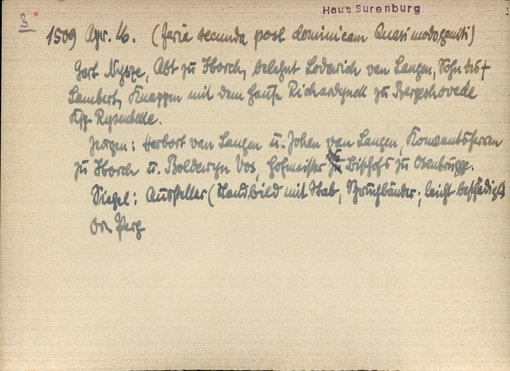 Haus Surenburg
3
1509 Apr. 16. (feria secunda post dominicam Quasimodogeniti)
Gert Nysze, Abt zu Iborch, belehnt Loderich van Langen, Sohn des †
Lambert, Knappen mit dem Hause zu Bergeshovede
Ksp. Rysenbecke.
Zeugen: Herbort van Langen u. Johan van Langen, Konventsherren
zu Iborch u. Boldewyn Vos, Hofmeister des Bischofs zu Osenbrugge.
Siegel: Aussteller (Standbild mit Stab, Spruchbänder; leicht beschädigt)
Or. Perg